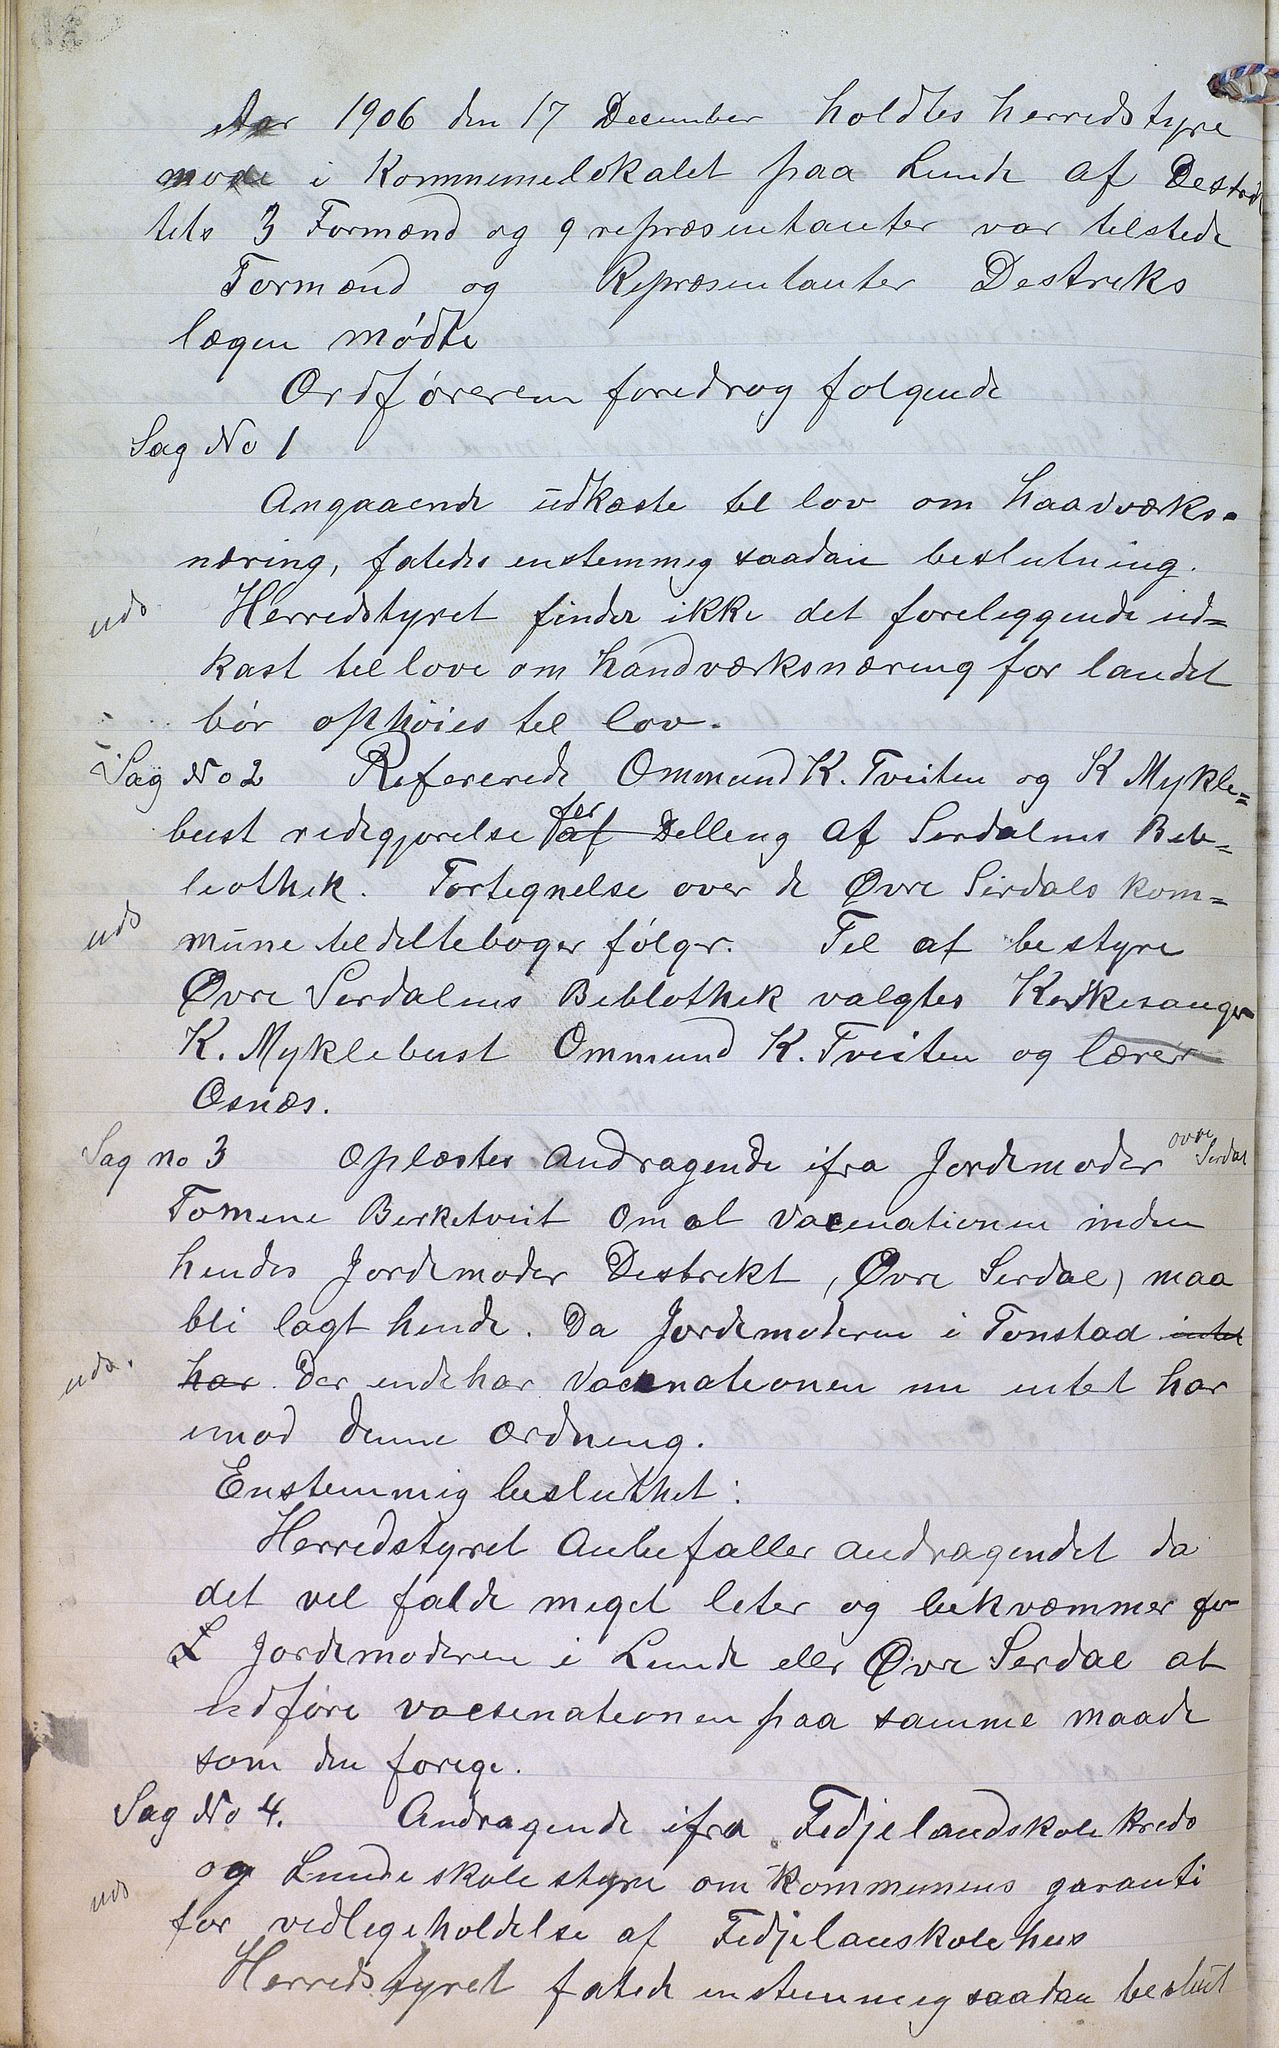 Aar 1906 den 17 December holdtes herredstyre
møde i Kommunelokalet paa Lunde af Destrik
tets 3 Formænd og 9 repræsentanter var tilstede
Formænd og Repræsentanter Destriks
lægen mødte
Ordføreren foredrog følgende
Sag No 1
Angaaende udkaste til lov om haadværks-
næring, fatedes enstemmig saadan beslutning.
uds Herredstyret finder ikke det foreleggende ud=
kast til love om håndværksnæring for landet
bør ophøies til lov.
Sag No 2 Refererede Ommund K. Tveiten og K Mykle=
bust redegjørelse for af Delleng af Serdalens Beb=
leothek. Fortegnelse over de Øvre Sirdals kom=
uds mune tildeltebøger følger. Til at bestyre
Øvre Serdalens Beblothek valgtes Kerkesanger
K. Myklebust Ommund K. Tveiten og lærer
Osnæs.
Sag no 3 Oplæstes Andragende ifra Jordemoder øvre Serdal
Tomene Berketveit om at vacenationen inden
hendes Jordemoder Destrekt, (Øvre Serdal) maa
bli lagt hende. Da Jordemoderen i Tonstad intet
uds. har. Der endehar Vacenationen nu entet har
imod denne Ordneng.
Enstemmig besluthet:
Herredstyret Anbefaller andragendet da
det vel falde meget leter og bekvæmmer for
Jordemoderen i Lunde eller Øvre Serdal at
udføre vacsenationen paa samme maade
som den forege.
Sag No 4. Andragende ifra Fedjelandskolekreds
uds og Lunde skolestyre om Kommunens garanti
for vedlegeholdelse af Fedjelanskolehus
Herredstyret fatede enstemmig saadan beslut